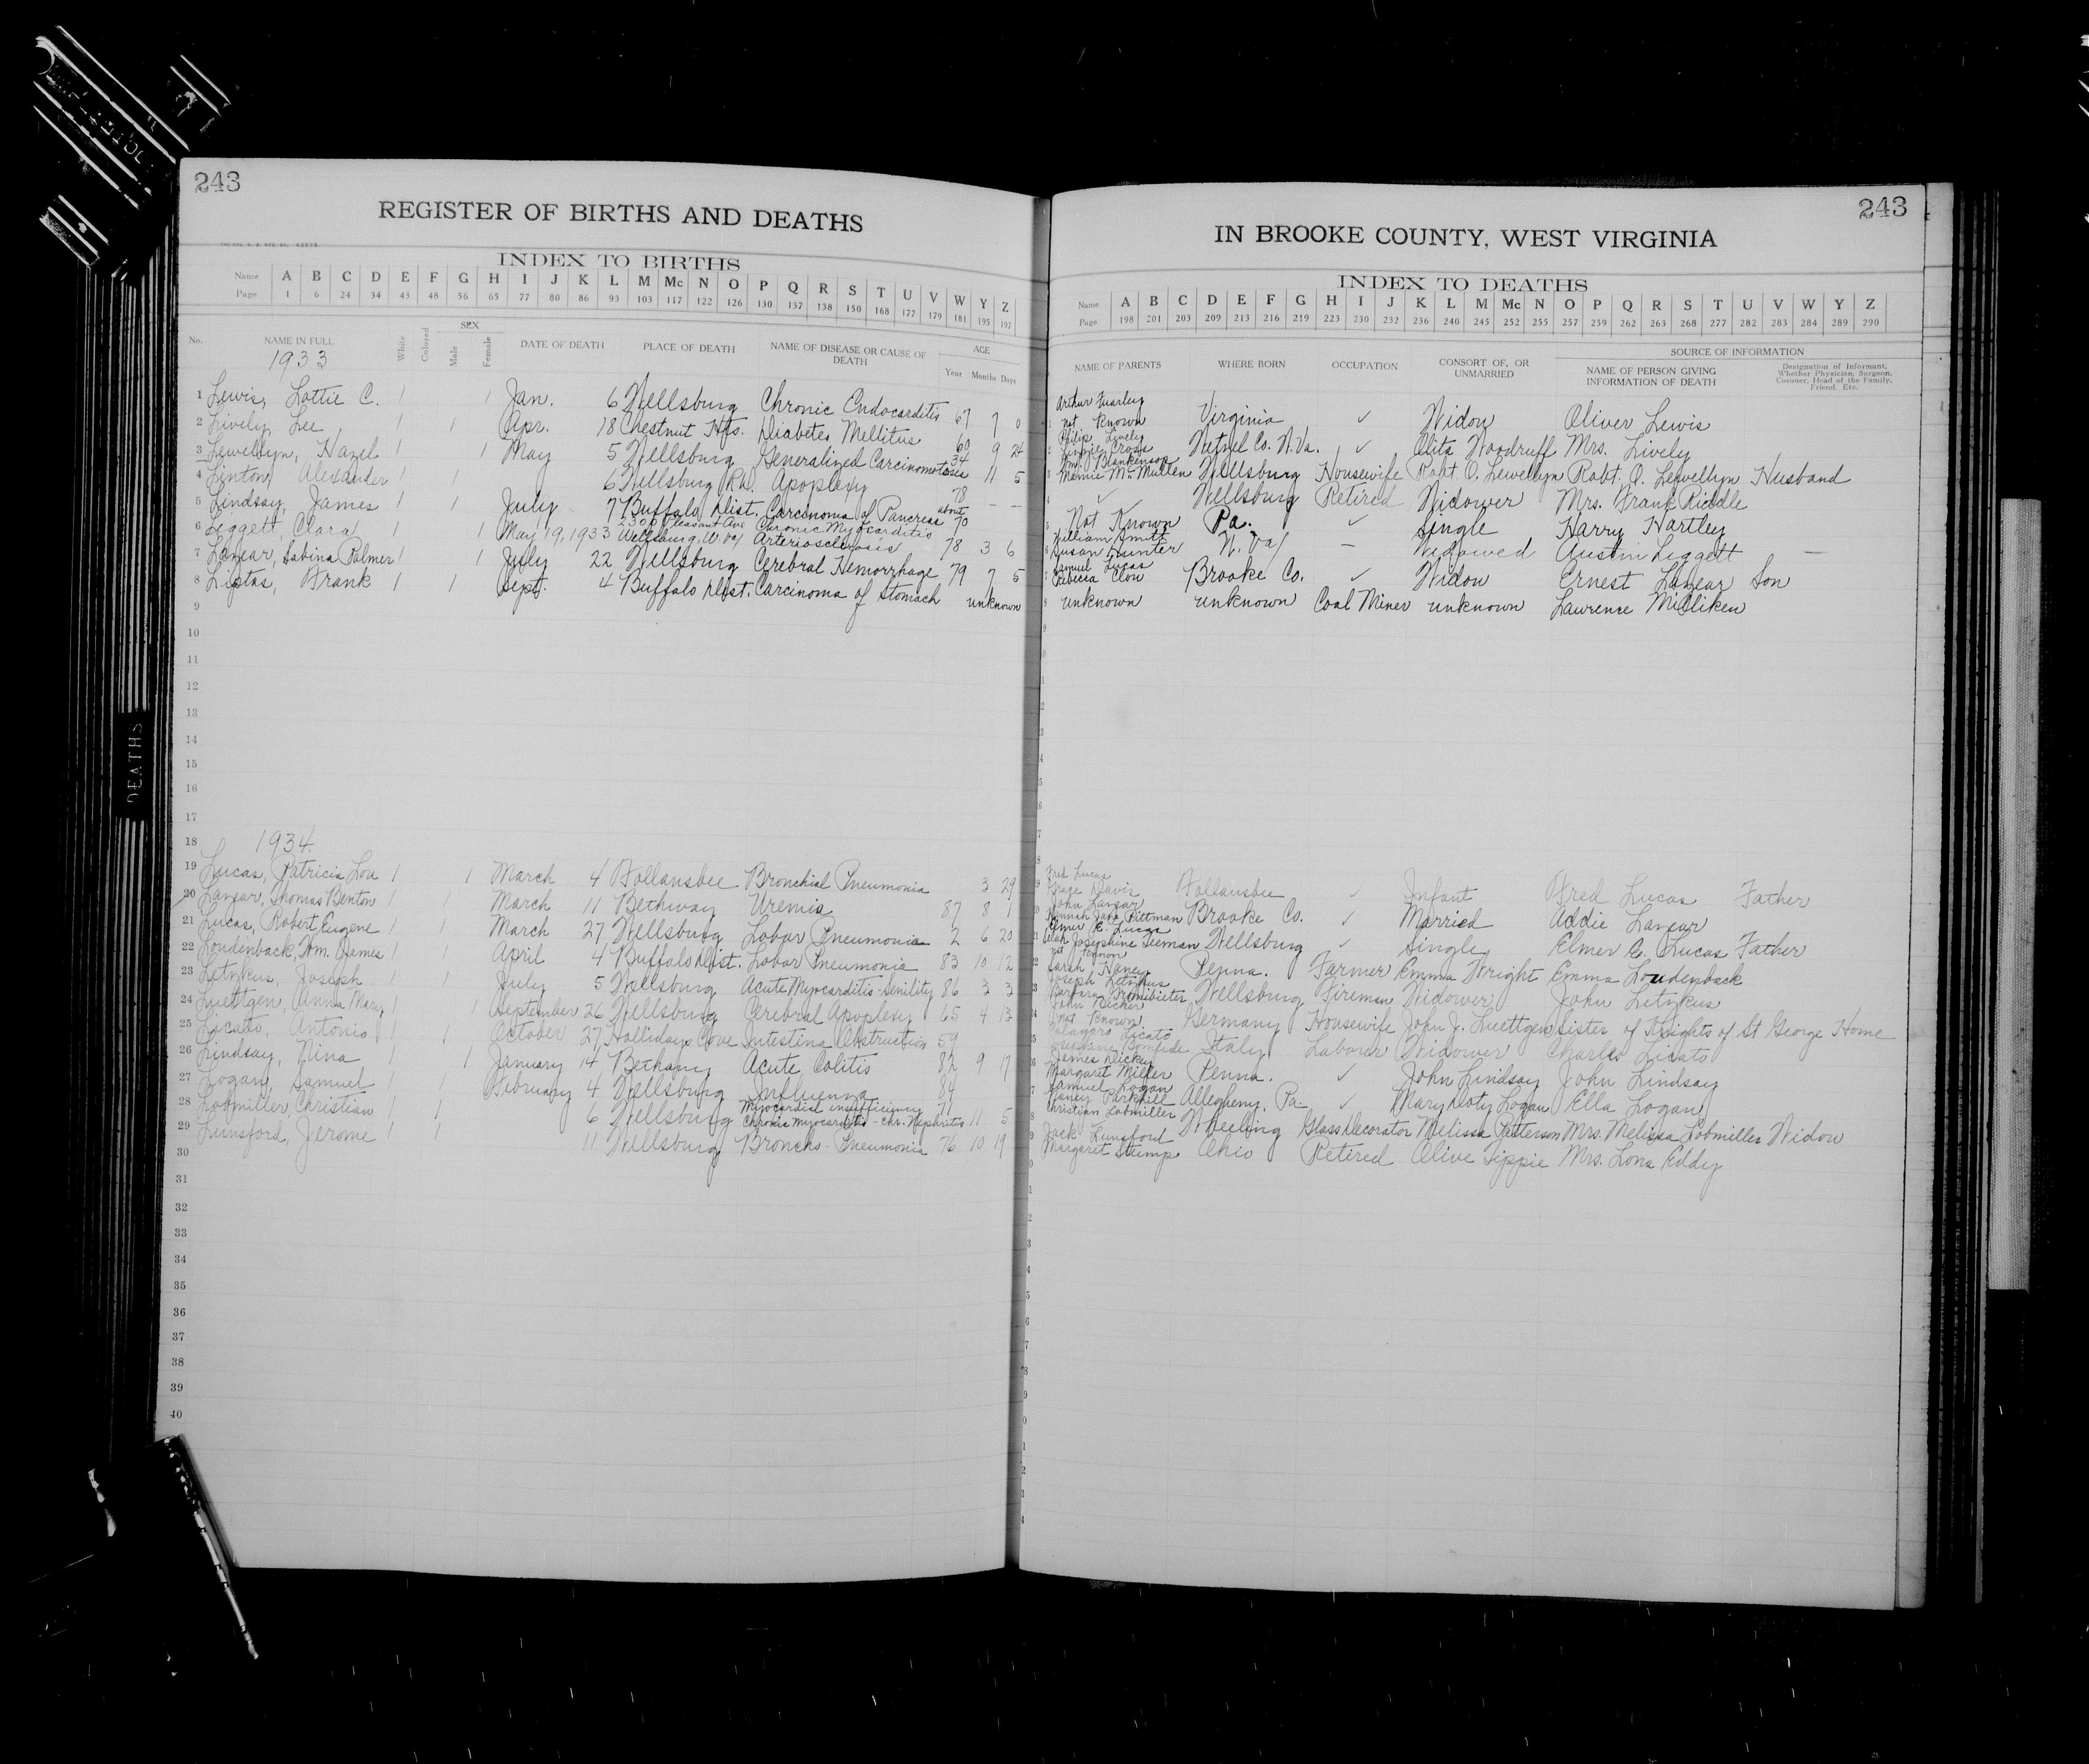 243
REGISTER OF BIRTHS AND DEATHS
INDEX TO BIRTHS
Name A B C D E F G H I J K L M Mc N O P Q R S T U V W Y Z
Page 1 6 24 34 43 48 56 65 77 80 86 93 103 117 122 126 130 137 138 150 168 177 179 181 195 197
No. NAME IN FULL White Colored SEX Male Female DATE OF DEATH PLACE OF DEATH NAME OF DISEASE OR CAUSE OF DEATH AGE Year Months Days
1933
1 Lewis, Lottie C. 1 1 Jan. 6 Wellsburg Chronic Endocarditis 67 7 0
2 Lively, Lee 1 1 Apr. 18 Chestnut Hts. Diabetes Mellitus 60 9 24
3 Lewellyn, Hazel 1 1 May 5 Wellsburg Generalized Carcinomatosis 34 11 5
4 Linton, Alexander 1 1 6 Wellsburg Rd. Apoplexy 78 — —
5 Lindsay, James 1 1 July 7 Buffalo Dist. Carcinoma of Pancreas about 70
6 Leggett, Clara 1 1 May 19, 1933 2300 Pleasant Ave Wellsburg, W. Va Chronic Myocarditis Arteriosclerosis 78 3 6
7 Lazear, Sabina Palmer 1 1 July 22 Wellsburg Cerebral Hemorrhage 79 7 5
8 Liptas, Frank 1 1 Sept. 4 Buffalo Dist. Carcinoma of Stomach unknown
9
10
11
12
13
14
15
16
17
18 1934
19 Lucas, Patricia Lou 1 1 March 4 Follansbee Bronchial Pneumonia 3 29
20 Lazear, Thomas Benton 1 1 March 11 Bethany Uremia 87 8 1
21 Lucas, Robert Eugene 1 1 March 27 Wellsburg Lobar Pneumonia 2 6 20
22 Loudenback, Wm. James 1 1 April 4 Buffalo Dist. Lobar Pneumonia 83 10 12
23 Letzkus, Joseph 1 1 July 5 Wellsburg Acute Myocarditis-Senility 86 3 3
24 Luettgen, Anna Mary 1 1 September 26 Wellsburg Cerebral Apoplexy 65 4 13
25 Licato, Antonio 1 1 October 27 Hollidays Cove Intestina Obstruction 59
26 Lindsay, Nina 1 1 January 14 Bethany Acute Colitis 82 9 17
27 Logan, Samuel 1 1 February 4 Wellsburg Influenza 84
28 Lobmiller, Christian 1 1 6 Wellsburg Myocardial insufficiency Chronic myocarditis - chr. Nephritis 71 11 5
29 Lunsford, Jerome 1 1 11 Wellsburg Broncho-Pneumonia 76 10 19
30
31
32
33
34
35
36
37
38
39
40
DEATHS
243
IN BROOKE COUNTY, WEST VIRGINIA
INDEX TO DEATHS
Name A B C D E F G H I J K L M Mc N O P Q R S T U V W Y Z
Page 198 201 203 209 213 216 219 223 230 232 236 240 245 252 255 257 259 262 263 268 277 282 283 284 289 290
NAME OF PARENTS WHERE BORN OCCUPATION CONSORT OF, OR UNMARRIED SOURCE OF INFORMATION NAME OF PERSON GIVING INFORMATION OF DEATH Designation of Informant, Whether Physician, Surgeon, Coroner, Head of the Family, Friend, Etc.
Arthur
not Known Virginia ✓ Widow Oliver Lewis
Philip Lively
Cross Wetzel Co. W. Va. ✓ Olita Woodruff Mrs. Lively
Wm. J. Blankensop
Mamie McMullen Wellsburg Housewife Robt. O. Lewellyn Robt. O. Lewellyn Husband
✓ Wellsburg Retired Widower Mrs. Frank Riddle
Not Known Pa. ✓ Single Harry Hartley
William Smith
Susan Hunter W. Va — Widowed Austin Leggett —
Samuel Lucas
Rebecca Clou Brooke Co. ✓ Widow Ernest Lazear Son
unknown unknown Coal Miner unknown Lawrence Milliken
Fred Lucas
Grace Davis Follansbee ✓ Infant Fred Lucas Father
John Lazear
Hannah Jane Pittman Brooke Co. ✓ Married Addie Lazear
Elmer E. Lucas
Josephine Seeman Wellsburg ✓ Single Elmer E. Lucas Father
not Known
Sarah Haney Penna. Farmer Emma Wright Emma Loudenback
Joseph Letzkus
Barbara Wellsburg Fireman Widower John Letzkus
John Becker
not Known Germany Housewife John J. Luettgen Sister of Knights of St George Home
Licato
Bomfide Italy Laborer Widower Charles Licato
James Dickey
Margaret Miller Penna. ✓ John Lindsay John Lindsay
Samuel Logan
Nancy Parkhill Allegheny, Pa. ✓ Mary Doty Logan Ella Logan
Christian Lobmiller Wheeling Glass Decorator Melissa Patterson Mrs. Melissa Lobmiller Widow
Jack Lunsford
Margaret Stump Ohio Retired Olive Tippie Mrs. Lona Eddy